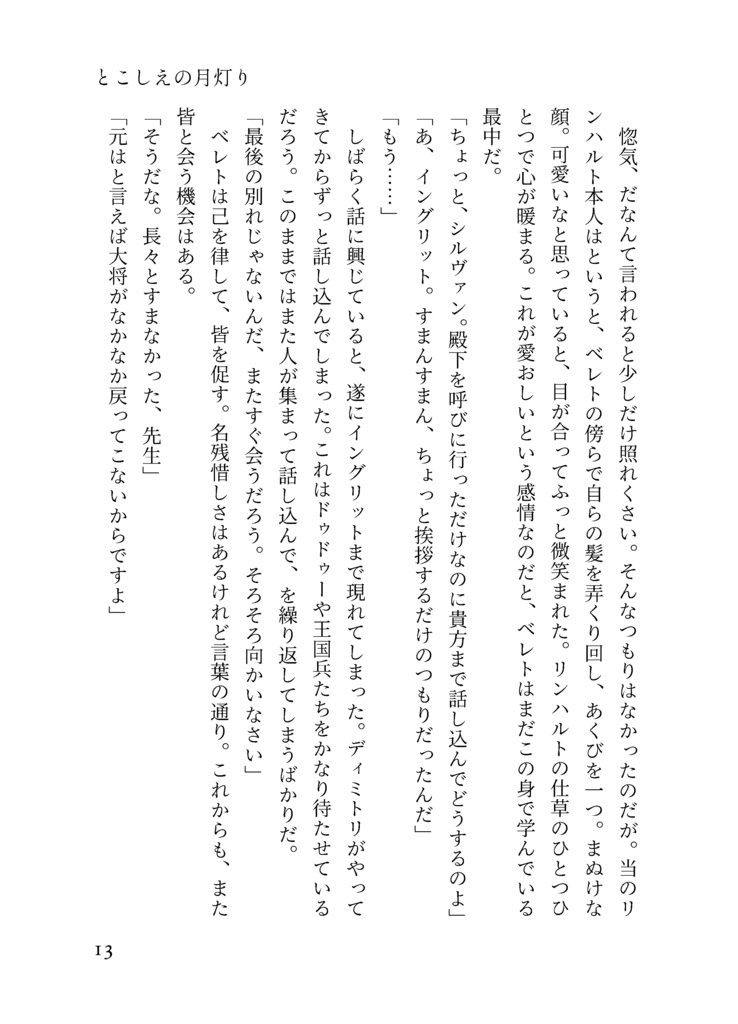 とこしえの月灯り
惚気、だなんて言われると少しだけ照れくさい。そんなつもりはなかったのだが。当のリ
ンハルト本人はというと、ベレトの傍らで自らの髪を弄くり回し、あくびを一つ。まぬけな
顔。可愛いなと思っていると、目が合ってふっと微笑まれた。リンハルトの仕草のひとつひ
とつで心が暖まる。これが愛おしいという感情なのだと、ベレトはまだこの身で学んでいる
最中だ。
「ちょっと、シルヴァン。殿下を呼びに行っただけなのに貴方まで話し込んでどうするのよ」
「あ、イングリット。すまんすまん、ちょっと挨拶するだけのつもりだったんだ」
「もう……」
しばらく話に興じていると、遂にイングリットまで現れてしまった。ディミトリがやって
きてからずっと話し込んでしまった。これはドゥドゥーや王国兵たちをかなり待たせている
だろう。このままではまた人が集まって話し込んで、を繰り返してしまうばかりだ。
「最後の別れじゃないんだ、またすぐ会うだろう。そろそろ向かいなさい」
ベレトは己を律して、皆を促す。名残惜しさはあるけれど言葉の通り。これからも、また
皆と会う機会はある。
「そうだな。長々とすまなかった、先生」
「元はと言えば大将がなかなか戻ってこないからですよ」
13